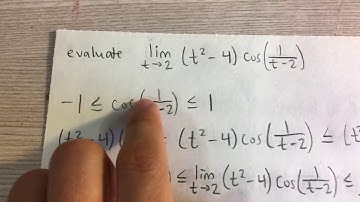 evaluate lim t→2 (t²-4) cos(1/(t-2))
-1 ≤ cos(1/(t-2)) ≤ 1
(t²-4)( (t²-4) cos(1/(t-2)) ≤ (t²
) ≤ lim t→2 (t²-4) cos(1/(t-2)) ≤